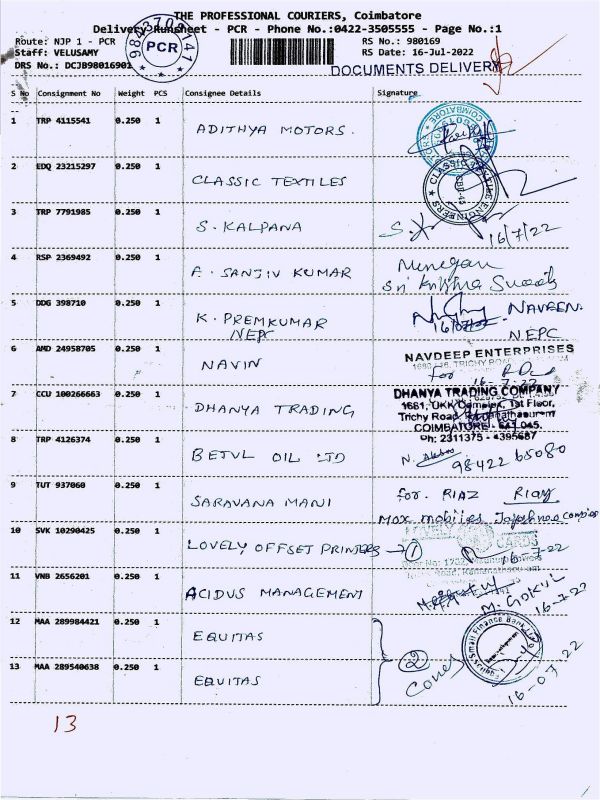 THE PROFESSIONAL COURIERS, Coimbatore
Delivery Runsheet - PCR - Phone No.:0422-3505555 - Page No.:1
Route: NJP 1 - PCR
RS No.: 980169
Staff: VELUSAMY
RS Date: 16-Jul-2022
DRS No.: DCJB98016901
PCR
9843709141
DOCUMENTS DELIVERY
S No Consignment No Weight PCS Consignee Details Signature
1 TRP 4115541 0.250 1 ADITHYA MOTORS.
COIMBATORE
2 EDQ 23215297 0.250 1 CLASSIC TEXTILES
ENGINEERS
3 TRP 7791985 0.250 1 S. KALPANA
16/7/22
4 RSP 2369492 0.250 1 F. SANJIV KUMAR Murugan
Sri Krishna Sweets
5 DDG 398710 0.250 1 K. PREMKUMAR NAVEEN.
NEPC 16/07/22 NEPC
6 AMD 24958705 0.250 1 NAVIN NAVDEEP ENTERPRISES
for
16-7-22
7 CCU 100266663 0.250 1 DHANYA TRADING DHANYA TRADING COMPANY
1681, UKK Complex, 1st Floor,
Trichy Road, Ramanathapuram
COIMBATORE - 641 045.
Ph: 2311375 - 4395687
8 TRP 4126374 0.250 1 BETUL OIL LTD N. 98422 65080
9 TUT 937060 0.250 1 SARAVANA MANI for. RIAZ Riaz
Max mobiles
10 SVK 10290425 0.250 1 LOVELY OFFSET PRINTERS → 1
LOVELY CARDS
16-7-22
11 VNB 2656201 0.250 1 ACIDUS MANAGEMENT
M. GOKUL
16-7-22
12 MAA 289984421 0.250 1 EQUITAS
Small Finance Bank Ltd
13 MAA 289540638 0.250 1 EQUITAS
2 Cover
16-07-22
13